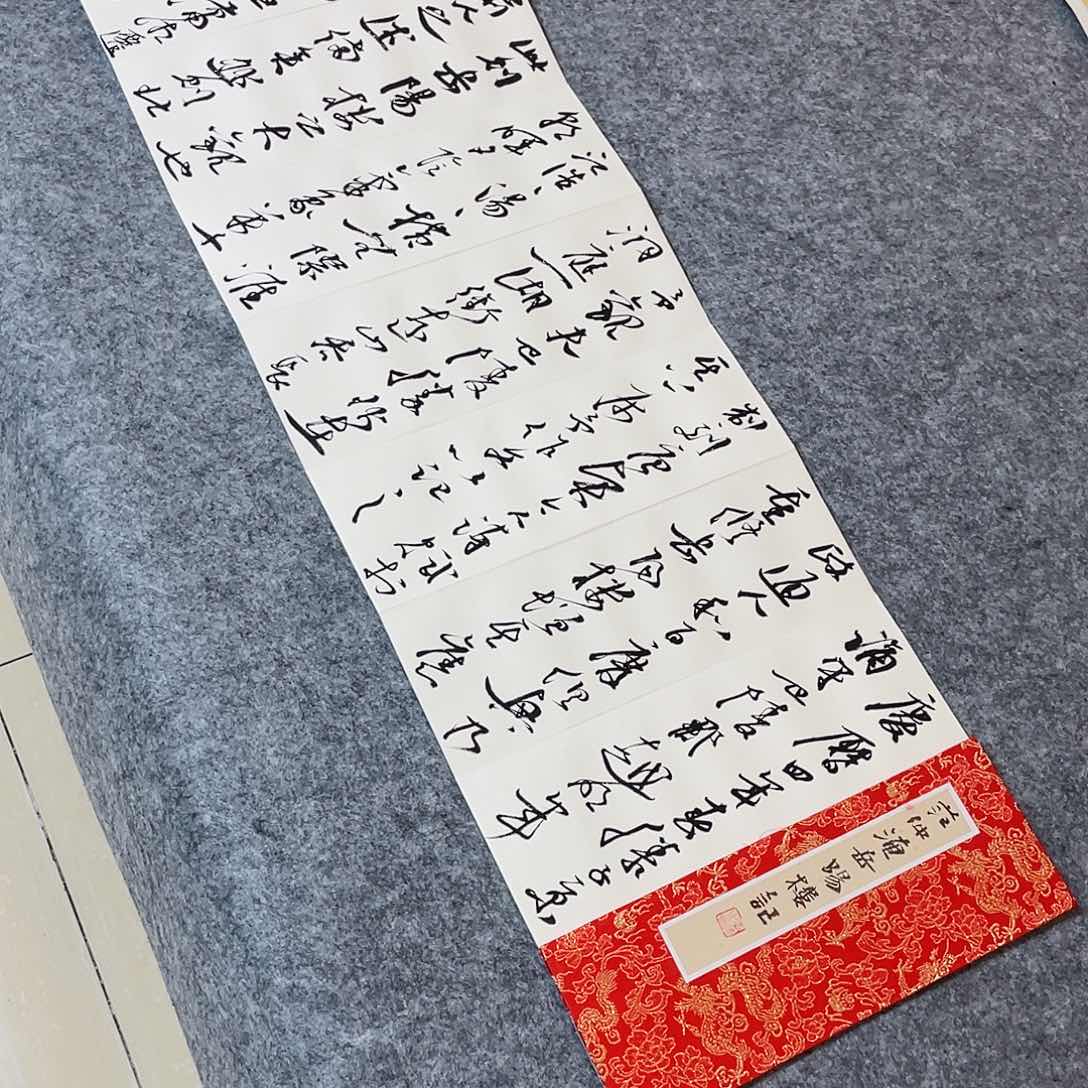 范仲淹岳陽樓記
慶曆四年春滕子京
謫守巴陵郡越明年
政通人和百廢俱興乃
重修岳陽樓增其舊
制刻唐賢今人詩賦於
其上屬予作文以記之
予觀夫巴陵勝狀在
洞庭一湖銜遠山吞長
江浩浩湯湯橫無際涯
朝暉夕陰氣象萬千
此則岳陽樓之大觀也
人之述備矣然則北